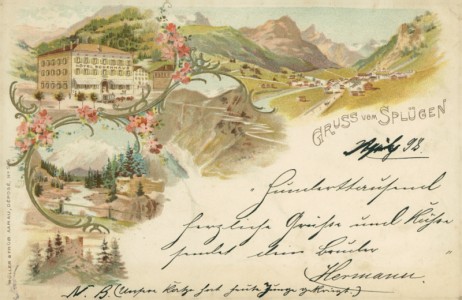 GRUSS VOM SPLÜGEN
98.
Hunderttausend
herzliche Grüsse und Küsse
sendet dein Bruder
Hermann.
N. B. (Unsere Katze hat heute Junge gekriegt)